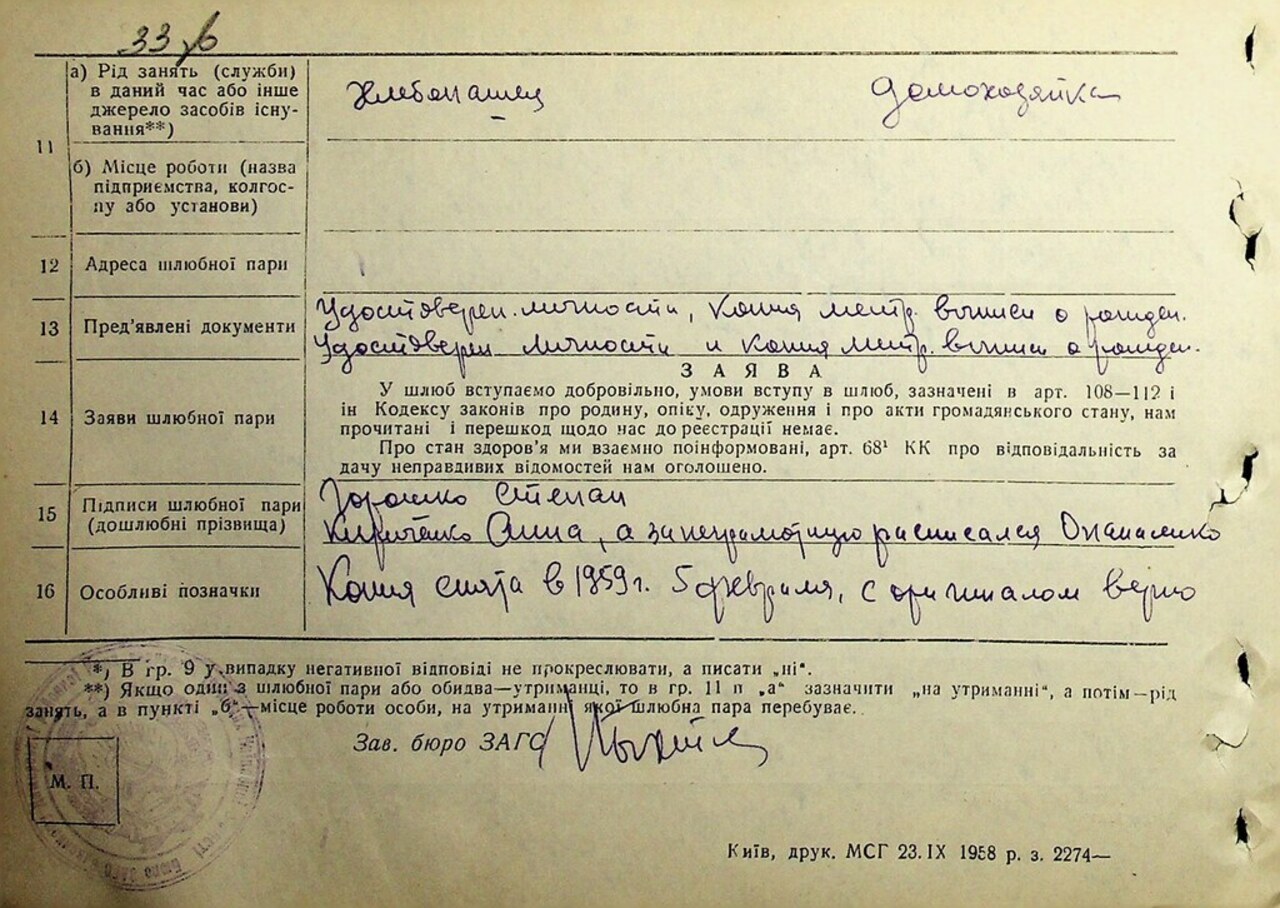 33
11
а) Рід занять (служби)
в даний час або інше
джерело засобів існу-
вання**)
Хлебопашец
Домохозяйка
б) Місце роботи (назва
підприємства, колгос-
пу або установи)
12 Адреса шлюбної пари
13 Пред'явлені документи
Удостоверен. личности, копия метр. выписи о рожден.
Удостоверен личности и копия метр. выписи о рожден.
14 Заяви шлюбної пари
ЗАЯВА
У шлюб вступаємо добровільно, умови вступу в шлюб, зазначені в арт. 108—112 і
ін Кодексу законів про родину, опіку, одруження і про акти громадянського стану, нам
прочитані і перешкод щодо нас до реєстрації немає.
Про стан здоров'я ми взаємно поінформовані, арт. 68¹ КК про відповідальність за
дачу неправдивих відомостей нам оголошено.
15 Підписи шлюбної пари
(дошлюбні прізвища)
Степан
Кириченко Анна, а за неграмотную расписался Опанасенко
16 Особливі позначки
Копия снята в 1959 г. 5 февраля, с оригиналом верно
*) В гр. 9 у випадку негативної відповіді не прокреслювати, а писати „ні".
**) Якщо один з шлюбної пари або обидва—утриманці, то в гр. 11 п „а" зазначити „на утриманні", а потім—рід
занять, а в пункті „б"—місце роботи особи, на утриманні якої шлюбна пара перебуває.
Зав. бюро ЗАГС
М. П.
Київ, друк. МСГ 23.IX 1958 р. з. 2274—